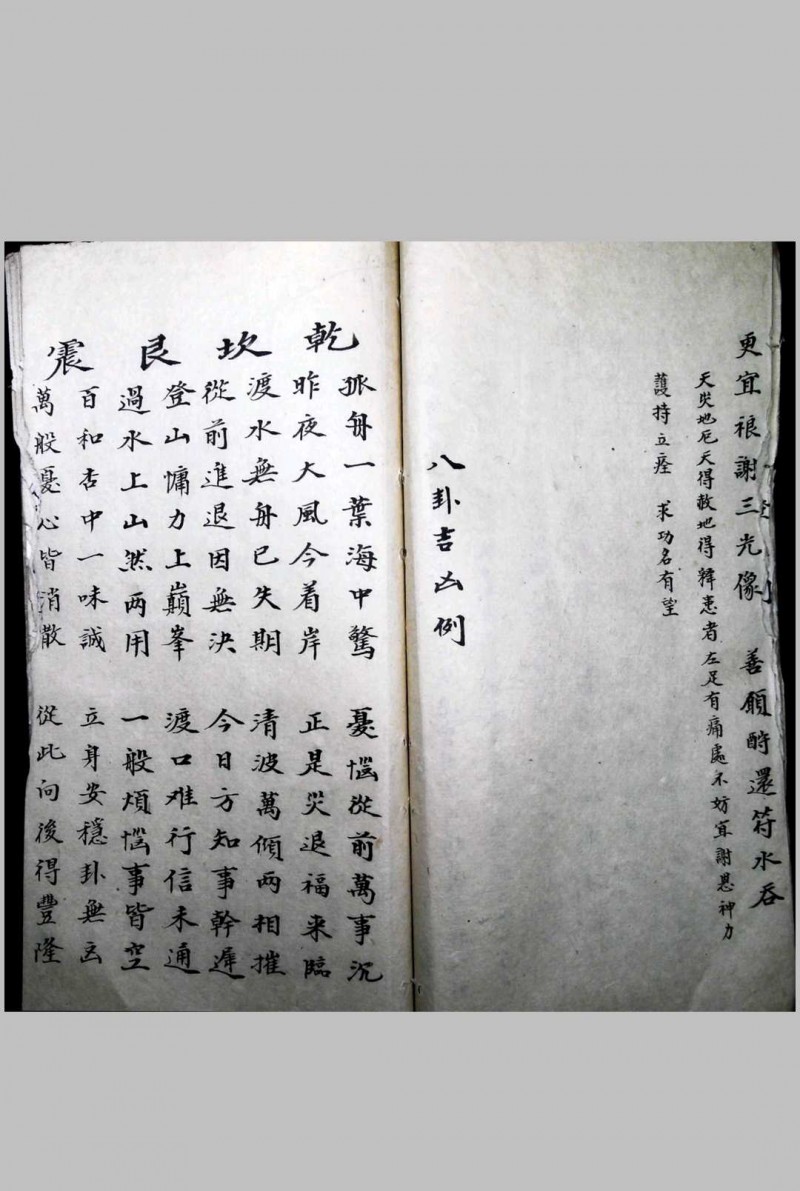 更宜禳謝三光像 善願酧還符水吞
天災地厄天得赦地得釋患者左足有痛處不妨宜謝恩神力
護持立痊 求功名有望
八卦吉凶例
乾
孤舟一葉海中驚 憂惱從前萬事沉
昨夜大風今着岸 正是災退福来臨
坎
渡水無舟已失期 清波萬傾两相摧
從前進退因無決 今日方知事幹遲
艮
登山慵力上巔峯 渡口难行信未通
過水上山然两用 一般煩惱事皆空
震
百和杳中一味誠 立身安穩卦無玄
萬般憂心皆消散 從此向後得豐隆